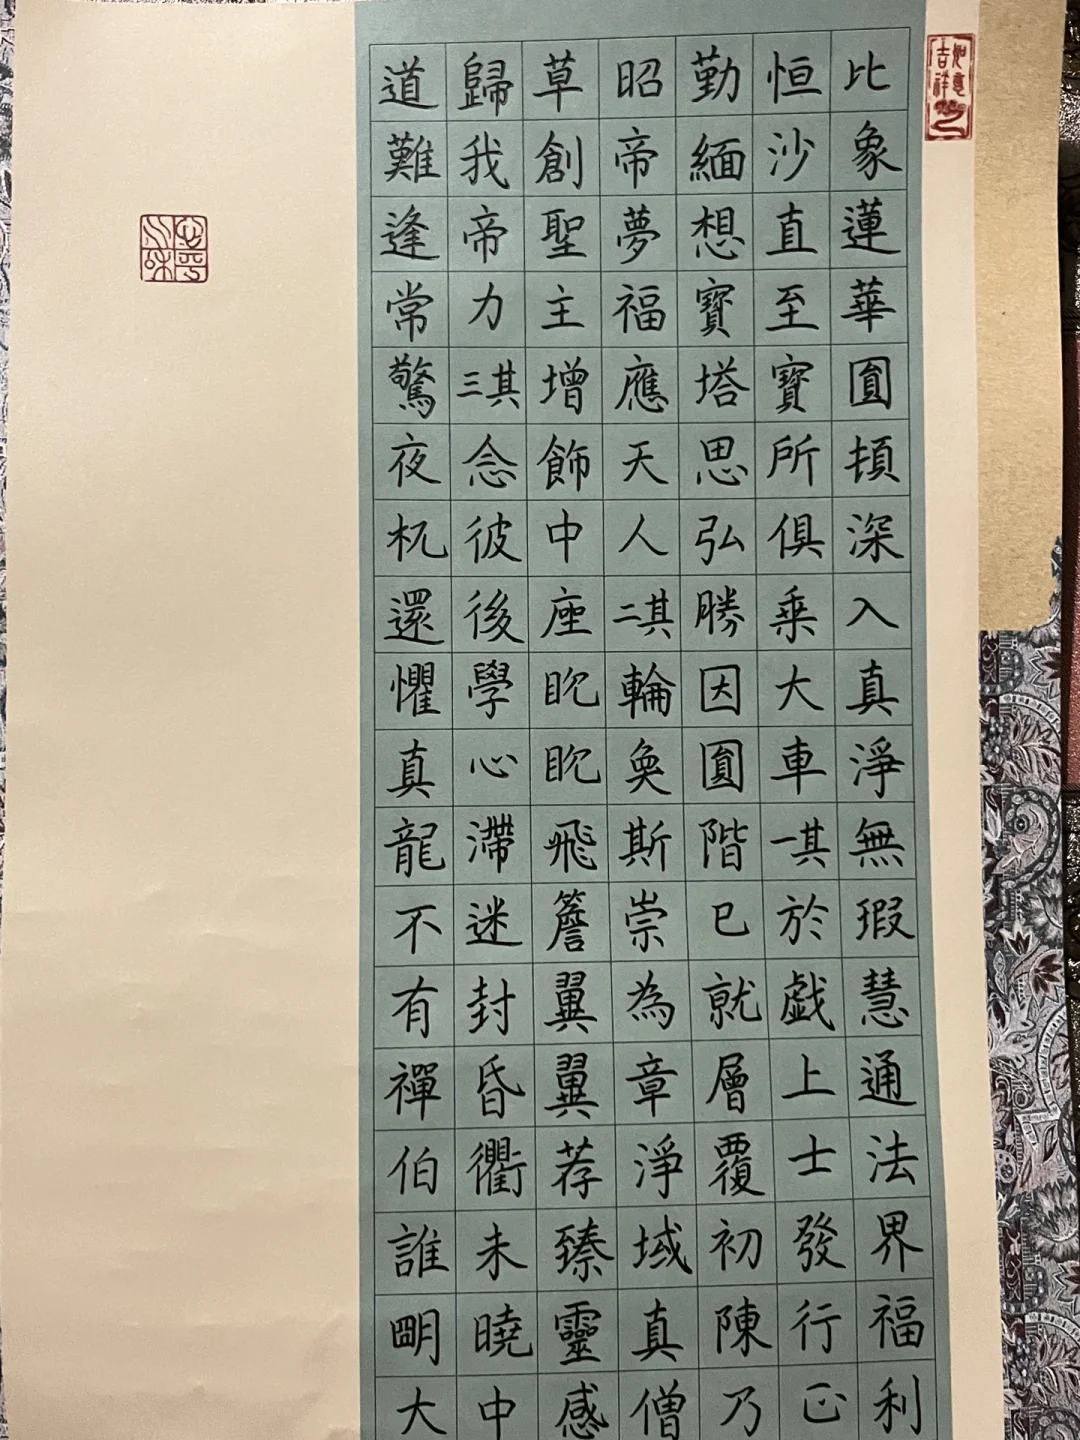 如意吉祥
比象蓮華圎頓深入真淨無瑕慧通法界福利
恒沙直至寶所俱乗大車一其於戯上士發行正
勤緬想寶塔思弘勝因圎階已就層覆初陳乃
昭帝夢福應天人二其輪奐斯崇為章淨域真僧
草創聖主增飾中座眈眈飛簷翼翼荐臻靈感
歸我帝力三其念彼後學心滯迷封昏衢未曉中
道難逢常驚夜杌還懼真龍不有禪伯誰朙大
心平氣和